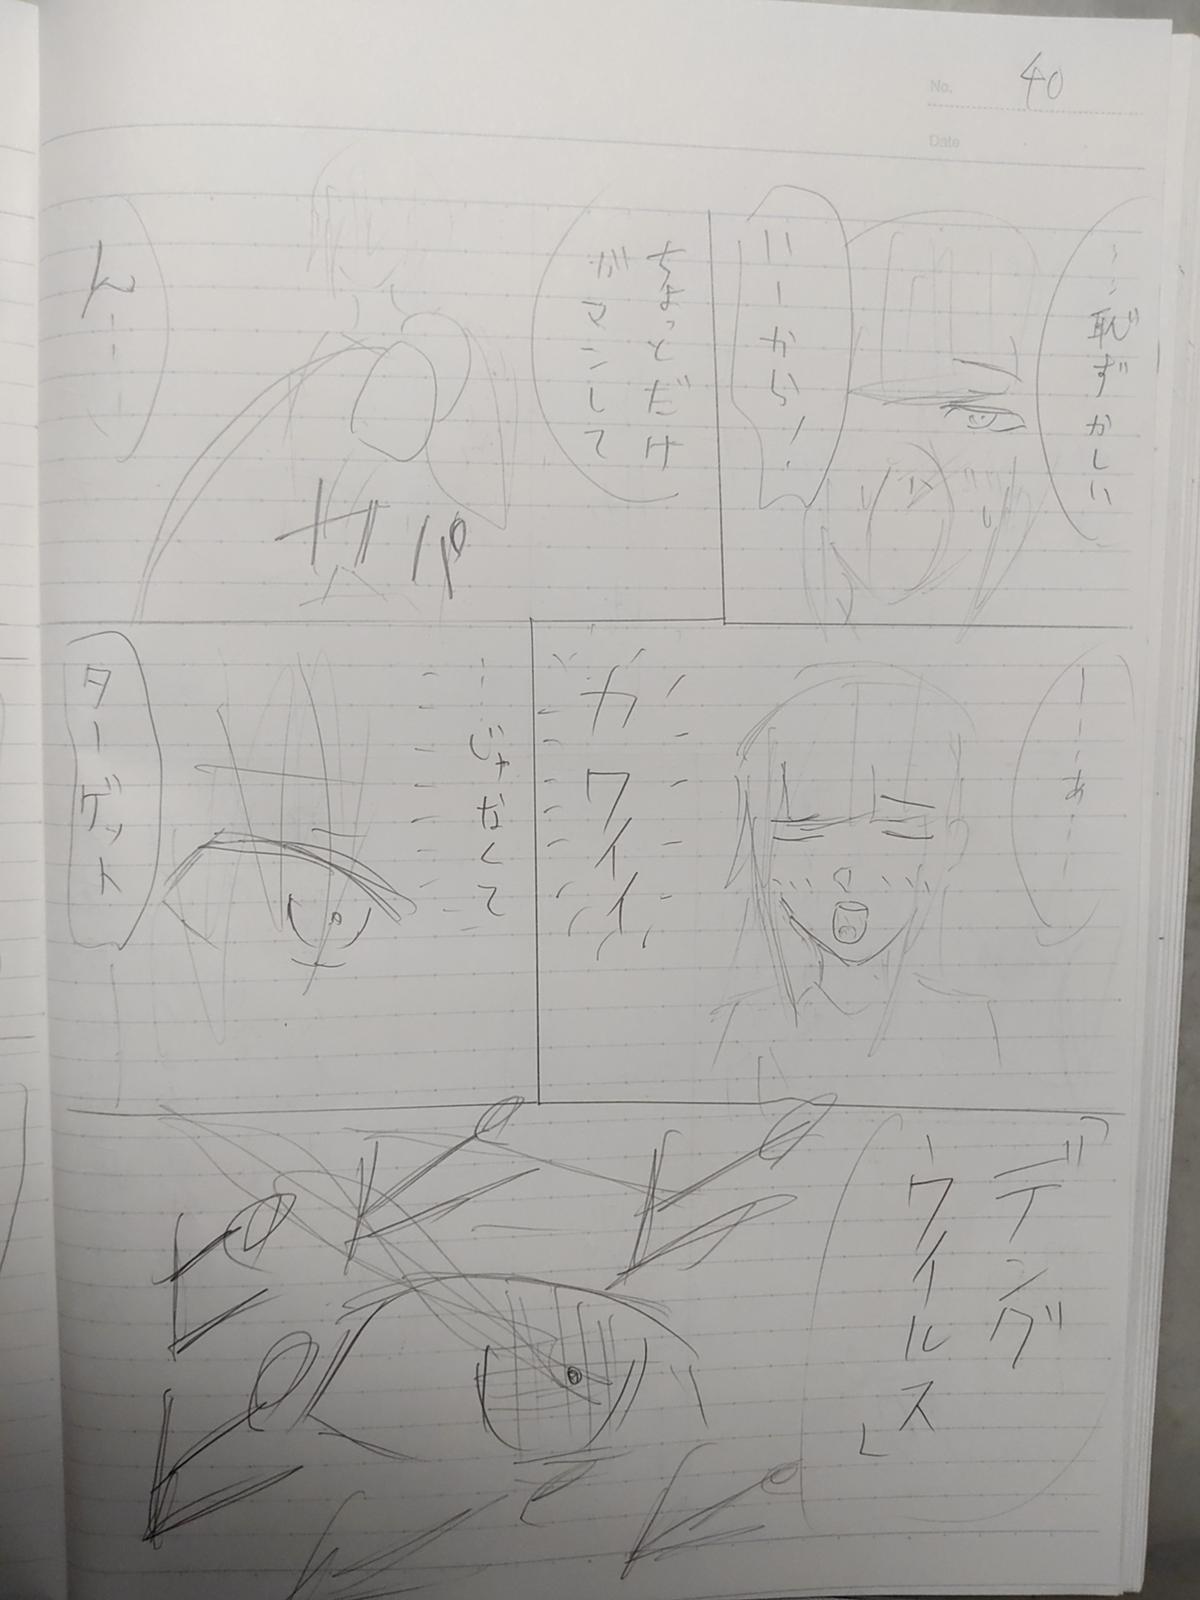 No. 40
Date
……恥ずかしい
いーから！
ちょっとだけ
ガマンして
ん……
ーーあーー
カワイイ
……じゃなくて
ターゲット
デング
ウイルス」